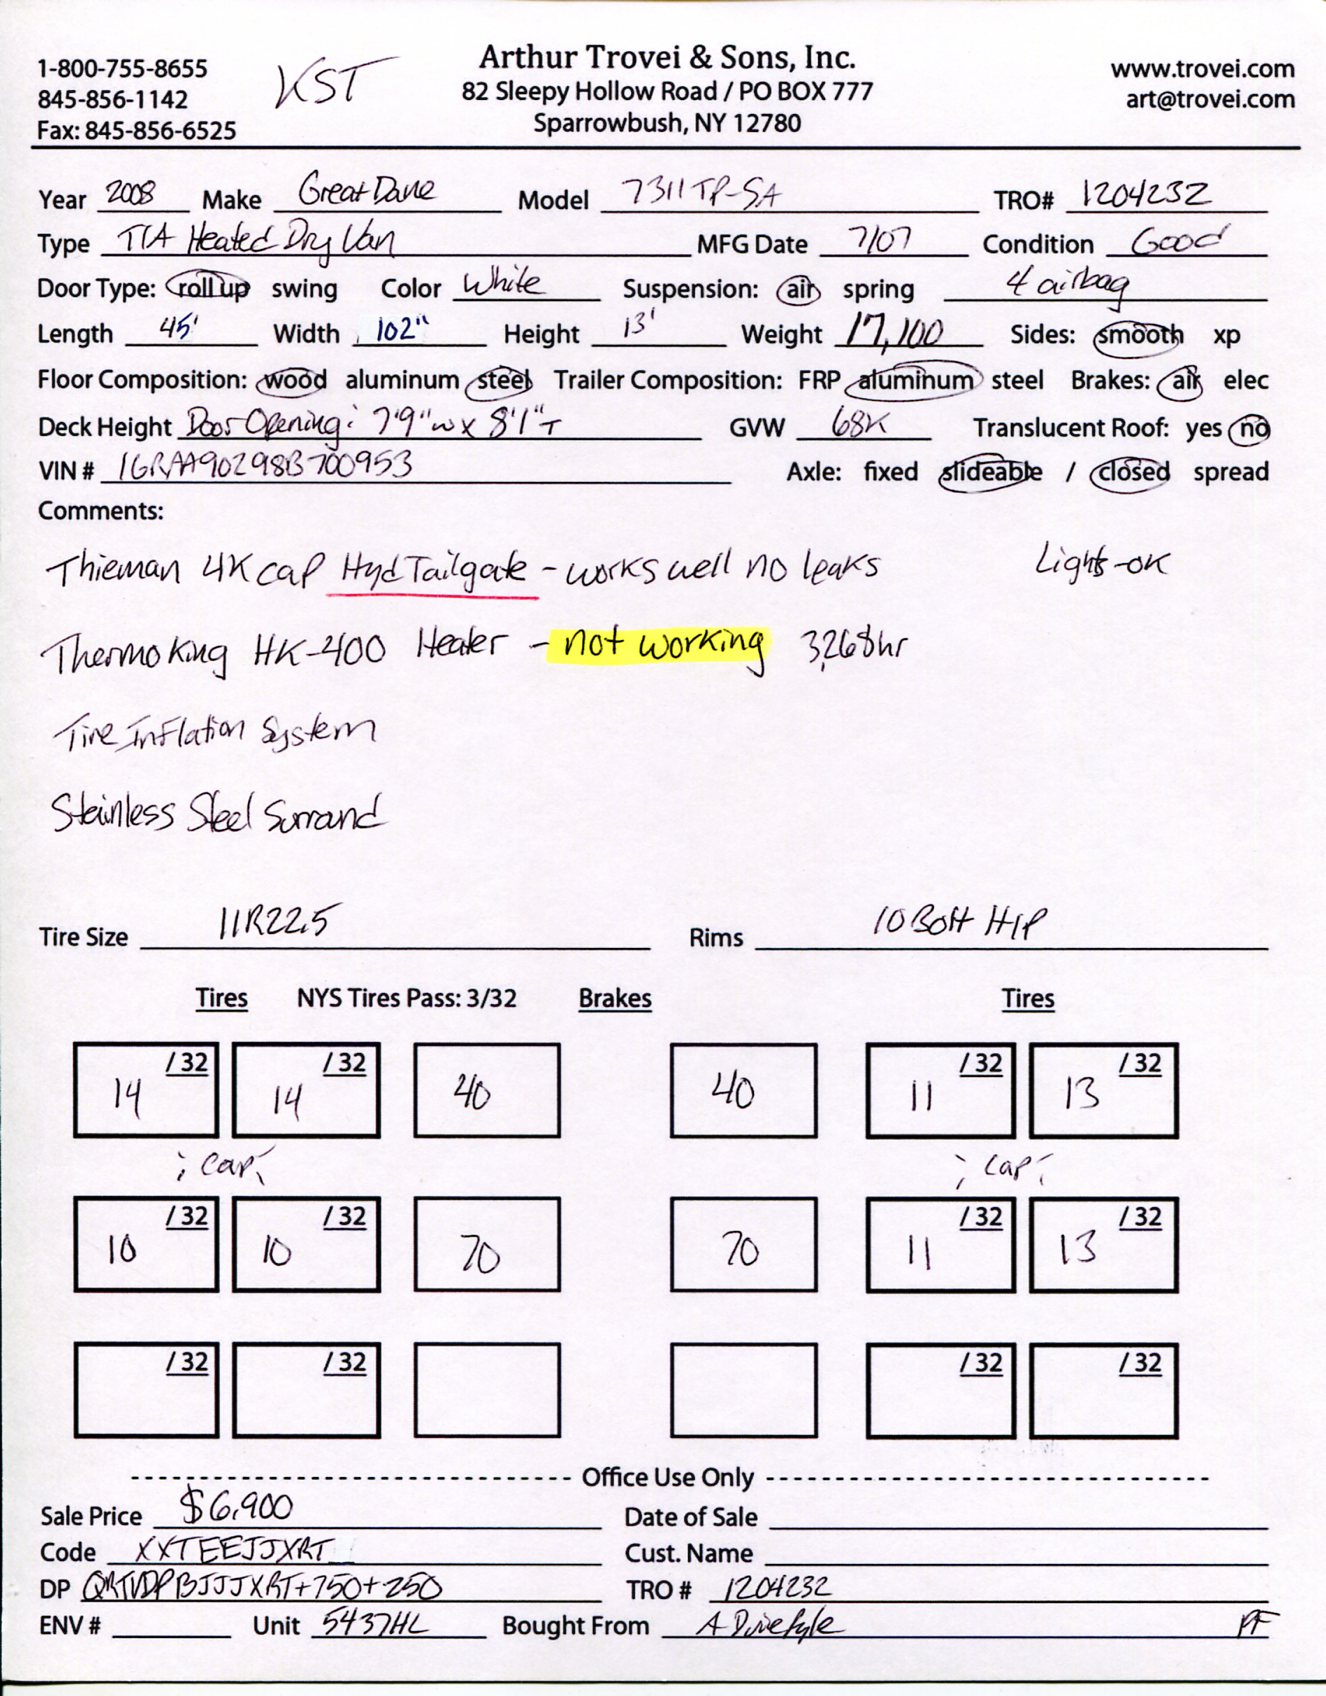 1-800-755-8655
845-856-1142
Fax: 845-856-6525
KST
Arthur Trovei & Sons, Inc.
82 Sleepy Hollow Road / PO BOX 777
Sparrowbush, NY 12780
www.trovei.com
art@trovei.com
Year 2008 Make Great Dane Model 7311TP-SA TRO# 1204232
Type T/A Heated Dry Van MFG Date 7/07 Condition Good
Door Type: roll up swing Color White Suspension: air spring 4 airbag
Length 45' Width 102" Height 13' Weight 17,100 Sides: smooth xp
Floor Composition: wood aluminum steel Trailer Composition: FRP aluminum steel Brakes: air elec
Deck Height Door Opening: 7'9"w x 8'1"T GVW 68K Translucent Roof: yes no
VIN # 1GRAA90298B700953 Axle: fixed slideable / closed spread
Comments:
Thieman 4K cap Hyd Tailgate - works well no leaks Lights-ok
Thermo King HK-400 Heater - not working 3,268hr
Tire Inflation System
Stainless Steel Surround
Tire Size 11R22.5 Rims 10 Bolt H/P
Tires NYS Tires Pass: 3/32 Brakes Tires
14 /32 14 /32 40 40 11 /32 13 /32
; cap ; cap
10 /32 10 /32 70 70 11 /32 13 /32
/32 /32 /32 /32
Office Use Only
Sale Price $6,900 Date of Sale
Code XXTEEJJXRT Cust. Name
DP +750+250 TRO # 1204232
ENV # Unit 5437HL Bought From A PF